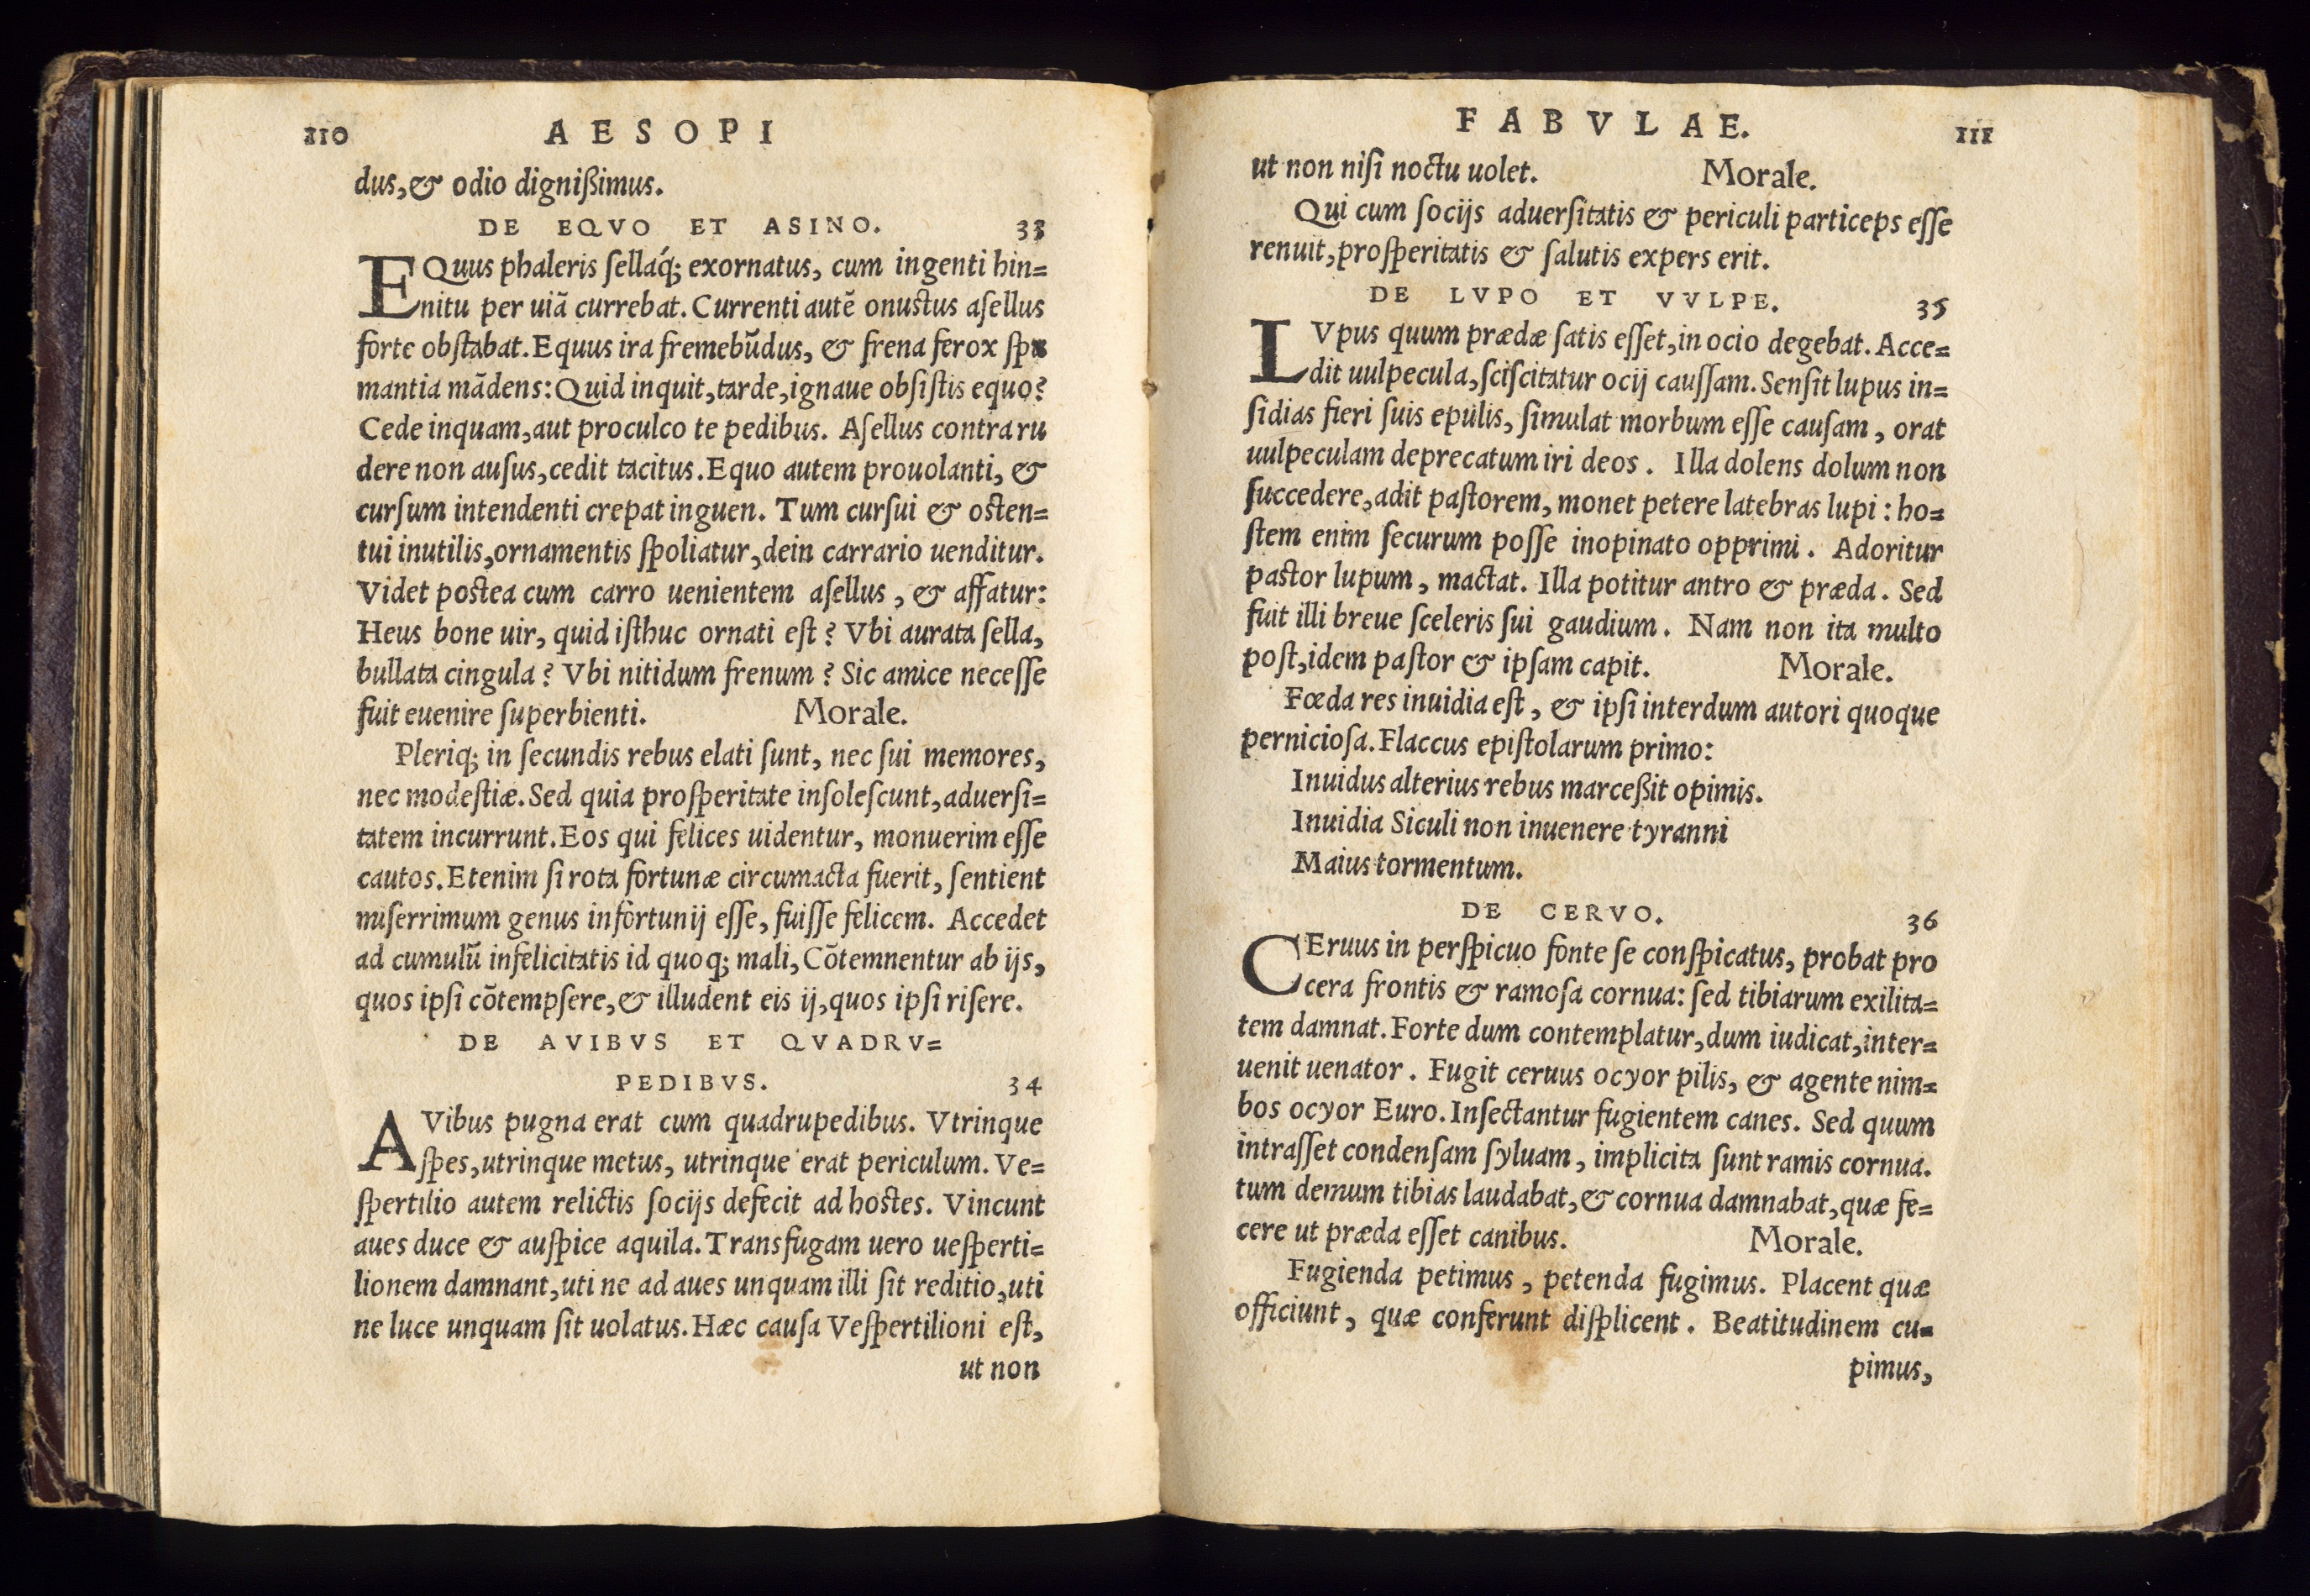 110 AESOPI
dus, & odio dignißimus.
DE EQVO ET ASINO. 33
EQuus phaleris ſellaq́; exornatus, cum ingenti hin=
nitu per uiã currebat. Currenti autẽ onuſtus aſellus
forte obſtabat. Equus ira fremebũdus, & frena ferox ſpu
mantia mãdens: Quid inquit, tarde, ignaue obſiſtis equo?
Cede inquam, aut proculco te pedibus. Aſellus contra ru
dere non auſus, cedit tacitus. Equo autem prouolanti, &
curſum intendenti crepat inguen. Tum curſui & oſten=
tui inutilis, ornamentis ſpoliatur, dein carrario uenditur.
Videt poſtea cum carro uenientem aſellus, & affatur:
Heus bone uir, quid iſthuc ornati eſt? Vbi aurata ſella,
bullata cingula? Vbi nitidum frenum? Sic amice neceſſe
fuit euenire ſuperbienti. Morale.
Pleriq; in ſecundis rebus elati ſunt, nec ſui memores,
nec modeſtiæ. Sed quia proſperitate inſoleſcunt, aduerſi=
tatem incurrunt. Eos qui felices uidentur, monuerim eſſe
cautos. Etenim ſi rota fortunæ circumacta fuerit, ſentient
miſerrimum genus infortunij eſſe, fuiſſe felicem. Accedet
ad cumulũ infelicitatis id quoq; mali, Cõtemnentur ab ijs,
quos ipſi cõtempſere, & illudent eis ij, quos ipſi riſere.
DE AVIBVS ET QVADRV=
PEDIBVS. 34
AVibus pugna erat cum quadrupedibus. Vtrinque
ſpes, utrinque metus, utrinque erat periculum. Ve=
ſpertilio autem relictis ſocijs defecit ad hoſtes. Vincunt
aues duce & auſpice aquila. Transfugam uero ueſperti=
lionem damnant, uti ne ad aues unquam illi ſit reditio, uti
ne luce unquam ſit uolatus. Hæc cauſa Veſpertilioni eſt,
ut non
FABVLAE. 111
ut non niſi noctu uolet. Morale.
Qui cum ſocijs aduerſitatis & periculi particeps eſſe
renuit, proſperitatis & ſalutis expers erit.
DE LVPO ET VVLPE. 35
LVpus quum prædæ ſatis eſſet, in ocio degebat. Acce=
dit uulpecula, ſciſcitatur ocij cauſſam. Senſit lupus in=
ſidias fieri ſuis epulis, ſimulat morbum eſſe cauſam, orat
uulpeculam deprecatum iri deos. Illa dolens dolum non
ſuccedere, adit paſtorem, monet petere latebras lupi: ho=
ſtem enim ſecurum poſſe inopinato opprimi. Adoritur
paſtor lupum, mactat. Illa potitur antro & præda. Sed
fuit illi breue ſceleris ſui gaudium. Nam non ita multo
poſt, idem paſtor & ipſam capit. Morale.
Fœda res inuidia eſt, & ipſi interdum autori quoque
pernicioſa. Flaccus epiſtolarum primo:
Inuidus alterius rebus marceßit opimis.
Inuidia Siculi non inuenere tyranni
Maius tormentum.
DE CERVO. 36
CEruus in perſpicuo fonte ſe conſpicatus, probat pro
cera frontis & ramoſa cornua: ſed tibiarum exilita=
tem damnat. Forte dum contemplatur, dum iudicat, inter=
uenit uenator. Fugit ceruus ocyor pilis, & agente nim=
bos ocyor Euro. Inſectantur fugientem canes. Sed quum
intraſſet condenſam ſyluam, implicita ſunt ramis cornua.
tum demum tibias laudabat, & cornua damnabat, quæ fe=
cere ut præda eſſet canibus. Morale.
Fugienda petimus, petenda fugimus. Placent quæ
officiunt, quæ conferunt diſplicent. Beatitudinem cu=
pimus,